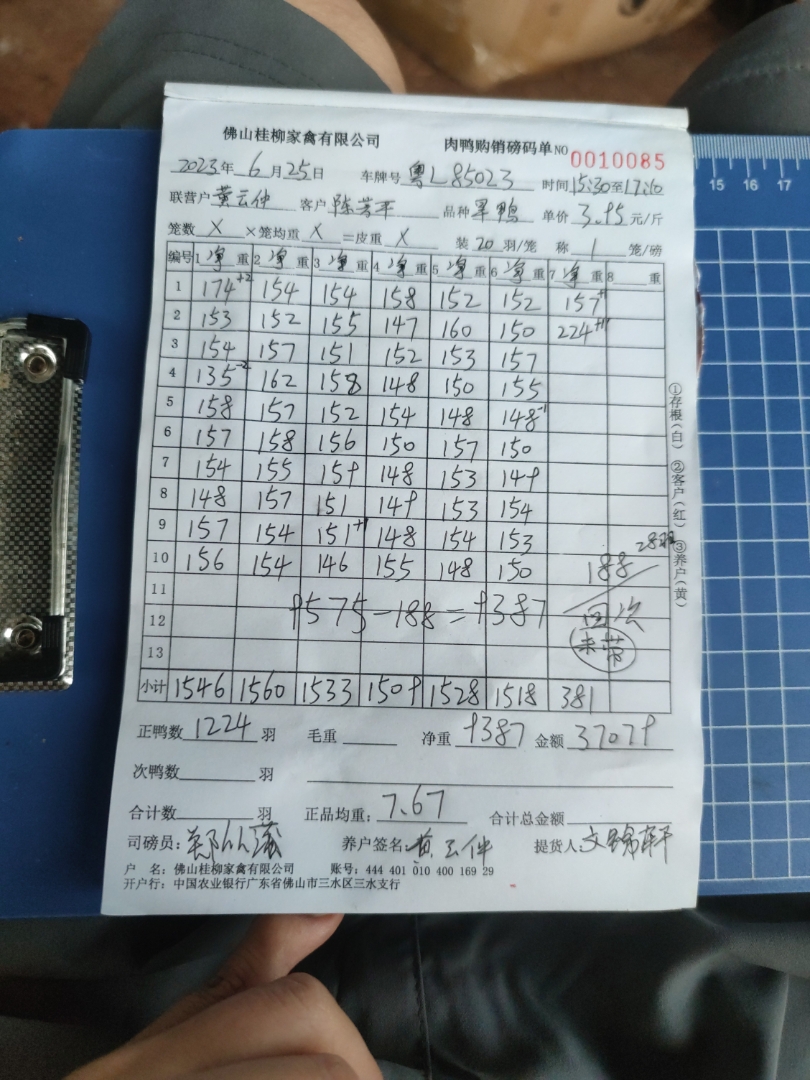 佛山桂柳家禽有限公司 肉鸭购销磅码单NO 0010085
2023年 6月25日 车牌号 粤L85023 时间15:30至17:10
联营户 黄云仲 客户 陈芳平 品种 旱鸭 单价 3.95元/斤
笼数 X ×笼均重 X =皮重 X 装20羽/笼 称 1 笼/磅
编号 1净重 2净重 3净重 4净重 5净重 6净重 7净重 8 重
1 174+2 154 154 158 152 152 157+1
2 153 152 155 147 160 150 224
3 154 157 151 152 153 157
4 135-2 162 158 148 150 155
5 158 157 152 154 148 148-1
6 157 158 156 150 157 150
7 154 155 159 148 153 149
8 148 157 151 149 153 154
9 157 154 151+1 148 154 153
10 156 154 146 155 148 150 188 28
11
12 9575-188=9387
13 未带
小计 1546 1560 1533 1509 1528 1518 381
正鸭数 1224 羽 毛重 净重 9387 金额 37079
次鸭数 羽
合计数 羽 正品均重: 7.67 合计总金额
司磅员: 养户签名: 黄云仲 提货人: 文锦轩
户 名: 佛山桂柳家禽有限公司 账号: 444 401 010 400 169 29
开户行: 中国农业银行广东省佛山市三水区三水支行
①存根(白) ②客户(红) ③养户(黄)
15 16 17